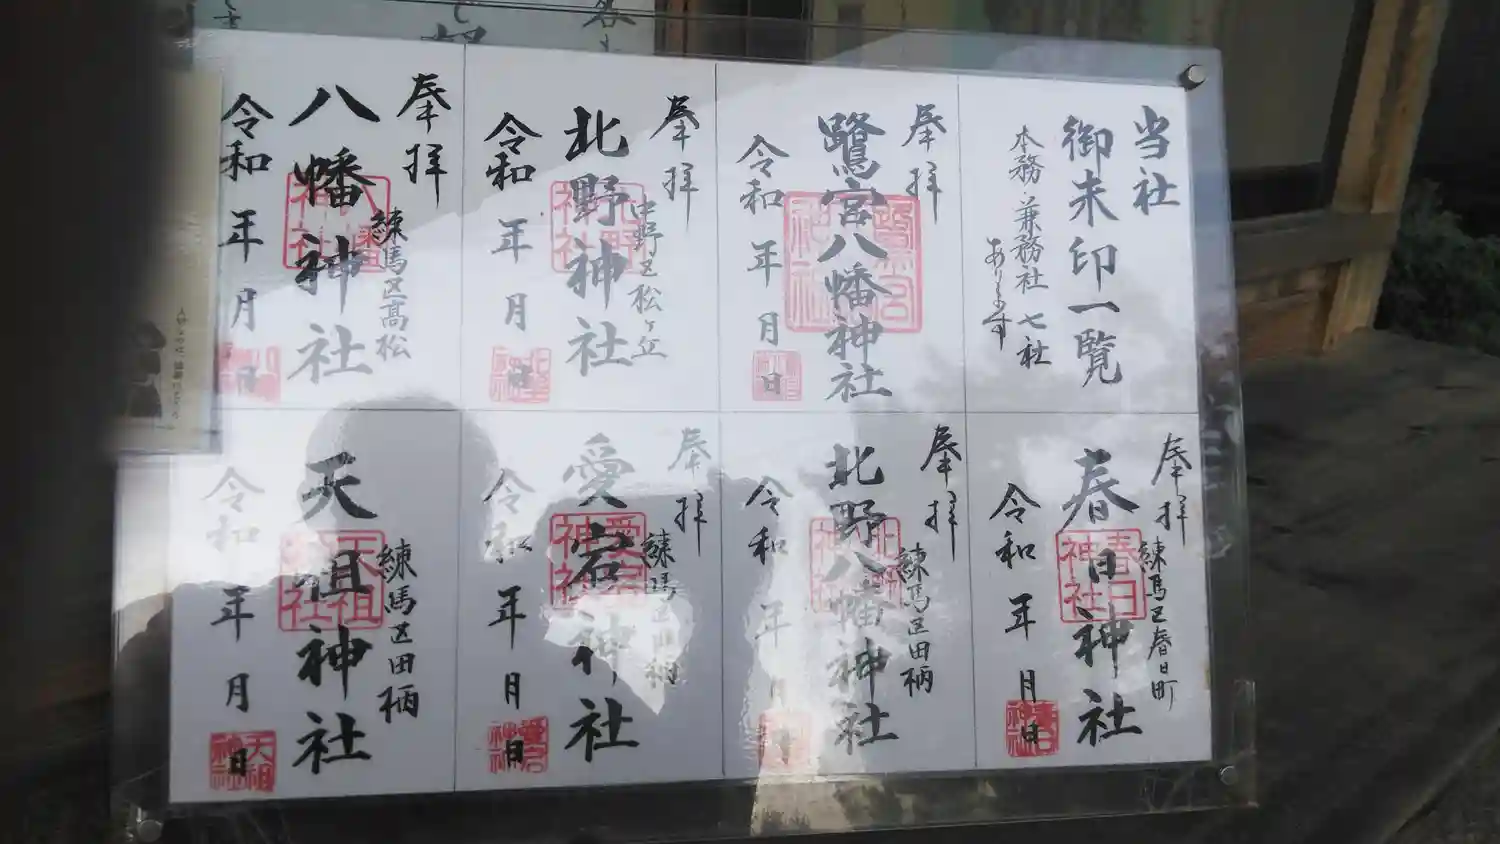 当社
御朱印一覧
本務・兼務社 七社
あります
奉拝
鷺宮八幡神社
令和 年 月 日
奉拝
中野区松ヶ丘
北野神社
令和 年 月 日
奉拝
練馬区高松
八幡神社
令和 年 月 日
奉拝
練馬区春日町
春日神社
令和 年 月 日
春日神社
奉拝
練馬区田柄
北野八幡神社
令和 年 月 日
奉拝
練馬区田柄
愛宕神社
令和 年 月 日
愛宕神社
練馬区田柄
天祖神社
令和 年 月 日
天祖神社
天祖神社